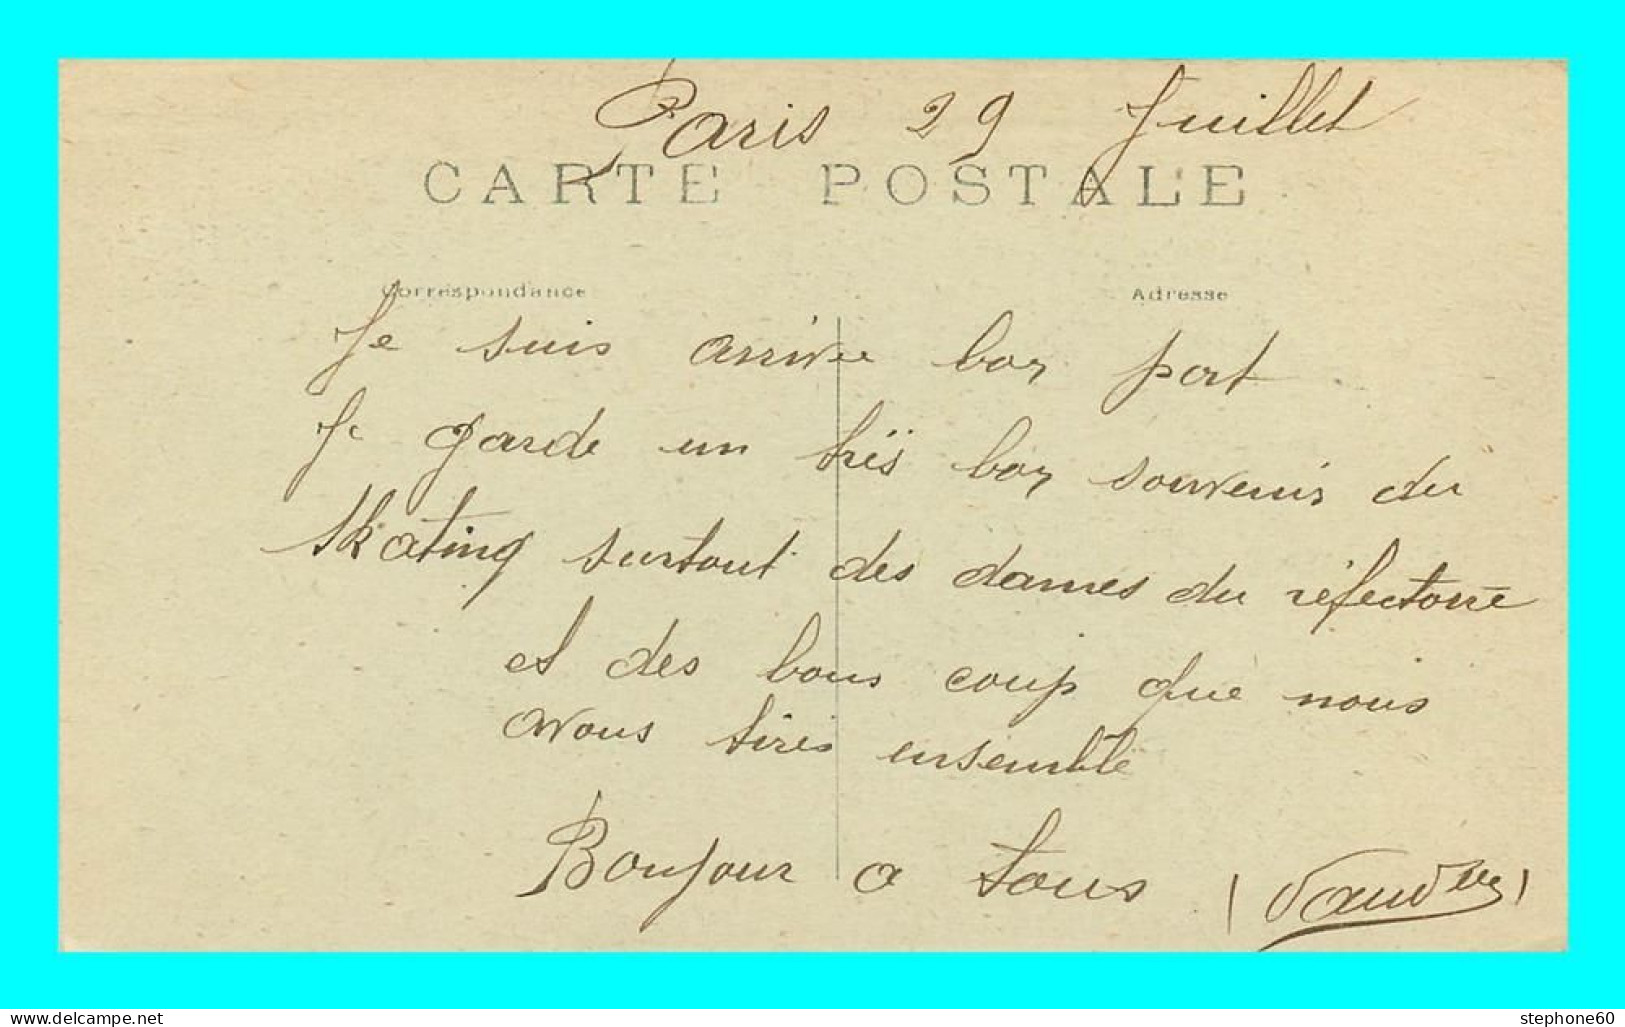 Paris 29 Juillet
CARTE POSTALE
Correspondance
Adresse
Je suis arrivee bon port
Je garde un très bon souvenir du
skating surtout des dames du réfectoire
et des bons coup que nous
avons tirés ensemble
Bonjour a tous
www.delcampe.net
stephone60